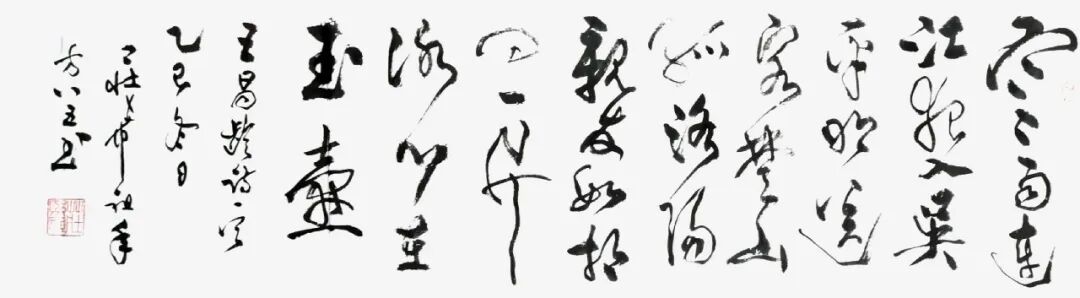 寒雨連
江夜入吴
平明送
客楚山
孤洛陽
親友如相
问一片
冰心在
玉壺
王昌齡詩一首
乙巳冬日
年
方八五书